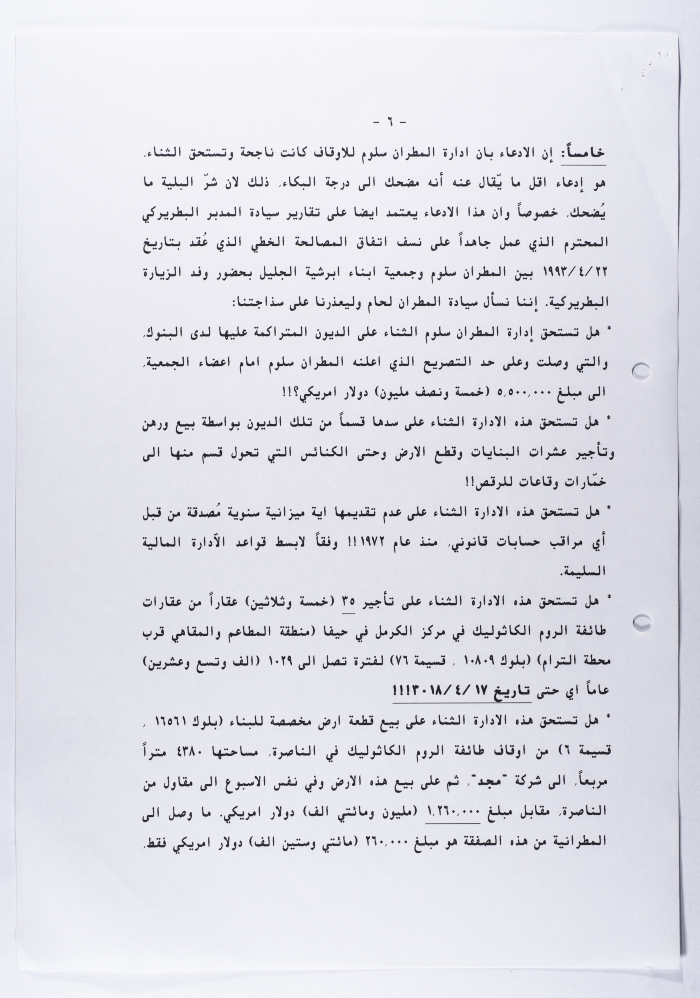 - ٦ -
خامساً: إن الادعاء بان ادارة المطران سلوم للاوقاف كانت ناجحة وتستحق الثناء،
هو إدعاء اقل ما يّقال عنه أنه مضحك الى درجة البكاء، ذلك لان شرّ البلية ما
يُضحك، خصوصاً وان هذا الادعاء يعتمد ايضا على تقارير سيادة المدبر البطريركي
المحترم الذي عمل جاهداً على نسف اتفاق المصالحة الخطي الذي عُقد بتاريخ
١٩٩٣/٤/٢٢ بين المطران سلوم وجمعية ابناء ابرشية الجليل بحضور وفد الزيارة
البطريركية. إننا نسأل سيادة المطران لحام وليعذرنا على سذاجتنا:
* هل تستحق إدارة المطران سلوم الثناء على الديون المتراكمة عليها لدى البنوك،
والتي وصلت وعلى حد التصريح الذي اعلنه المطران سلوم امام اعضاء الجمعية،
الى مبلغ ٥,٥٠٠,٠٠٠ (خمسة ونصف مليون) دولار امريكي؟!!
* هل تستحق هذه الادارة الثناء على سدها قسماً من تلك الديون بواسطة بيع ورهن
وتأجير عشرات البنايات وقطع الارض وحتى الكنائس التي تحول قسم منها الى
خمّارات وقاعات للرقص!!
* هل تستحق هذه الادارة الثناء على عدم تقديمها اية ميزانية سنوية مُصدقة من قبل
أي مراقب حسابات قانوني، منذ عام ١٩٧٢!! وفقاً لابسط قواعد الآدارة المالية
السليمة.
* هل تستحق هذه الادارة الثناء على تأجير ٣٥ (خمسة وثلاثين) عقاراً من عقارات
طائفة الروم الكاثوليك في مركز الكرمل في حيفا (منطقة المطاعم والمقاهي قرب
محطة الترام) (بلوك ١٠٨٠٩ ، قسيمة ٧٦) لفترة تصل الى ١٠٢٩ (الف وتسع وعشرين)
عاماً اي حتى تاريخ ٣٠١٨/٤/١٧!!!
* هل تستحق هذه الادارة الثناء على بيع قطعة ارض مخصصة للبناء (بلوك ١٦٥٦١ ،
قسيمة ٦) من اوقاف طائفة الروم الكاثوليك في الناصرة، مساحتها ٤٣٨٠ متراً
مربعاً، الى شركة "مجد"، ثم على بيع هذه الارض وفي نفس الاسبوع الى مقاول من
الناصرة، مقابل مبلغ ١,٢٦٠,٠٠٠ (مليون ومائتي الف) دولار امريكي، ما وصل الى
المطرانية من هذه الصفقة هو مبلغ ٢٦٠,٠٠٠ (مائتي وستين الف) دولار امريكي فقط،